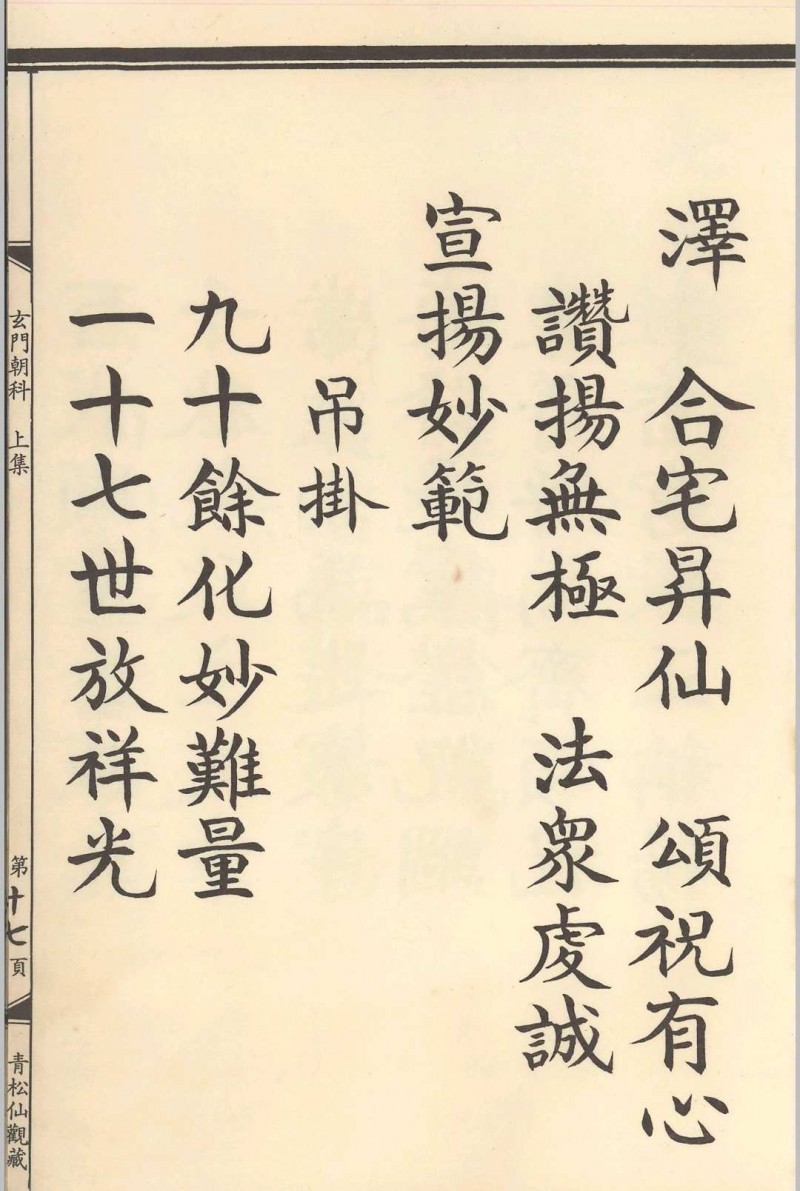 澤　合宅昇仙　頌祝有心
讚揚無極　法衆虔誠
宣揚妙範
吊掛
九十餘化妙難量
一十七世放祥光
玄門朝科　上集
第十七頁
青松仙觀藏